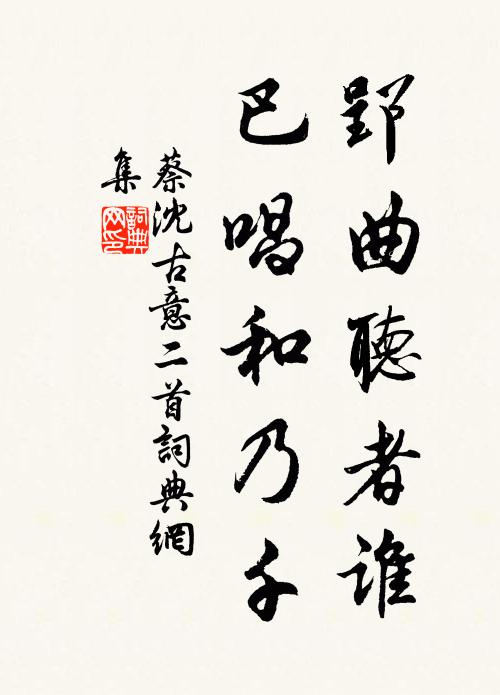 郢曲聽者誰
巴唱和乃千
蔡沈古意二首詞典網
集
詞典
网印